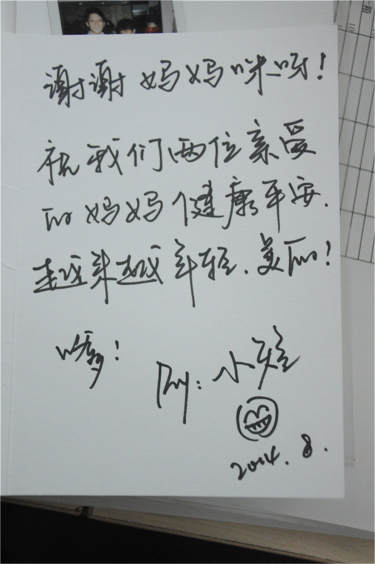 谢谢妈妈咪呀!
祝我们两位亲爱
的妈妈健康平安.
越来越年轻.美丽!
By: 小
2004.8.